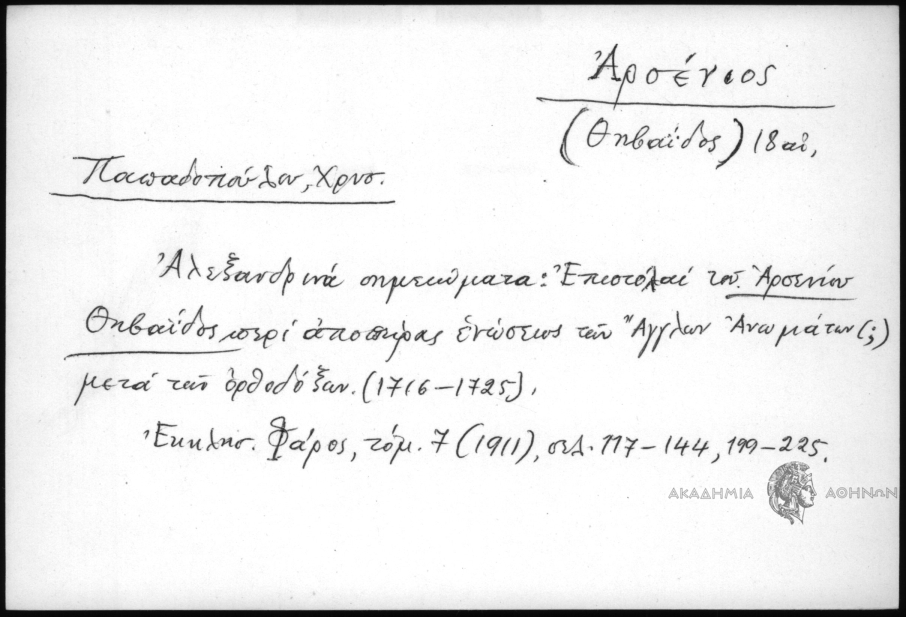 Ἀρσένιος
(Θηβαΐδος) 18 αἰ.
Παπαδοπούλου, Χρυσ.
Ἀλεξανδρινά σημειώματα: Ἐπιστολαί τοῦ Ἀρσενίου
Θηβαΐδος περί ἀποπείρας ἑνώσεως τῶν Ἄγγλων Ἀνωμότων (;)
μετά τῶν ὀρθοδόξων. (1716-1725).
Ἐκκλησ. Φάρος, τόμ. 7 (1911), σελ. 117-144, 199-225.
ΑΚΑΔΗΜΙΑ ΑΘΗΝΩΝ